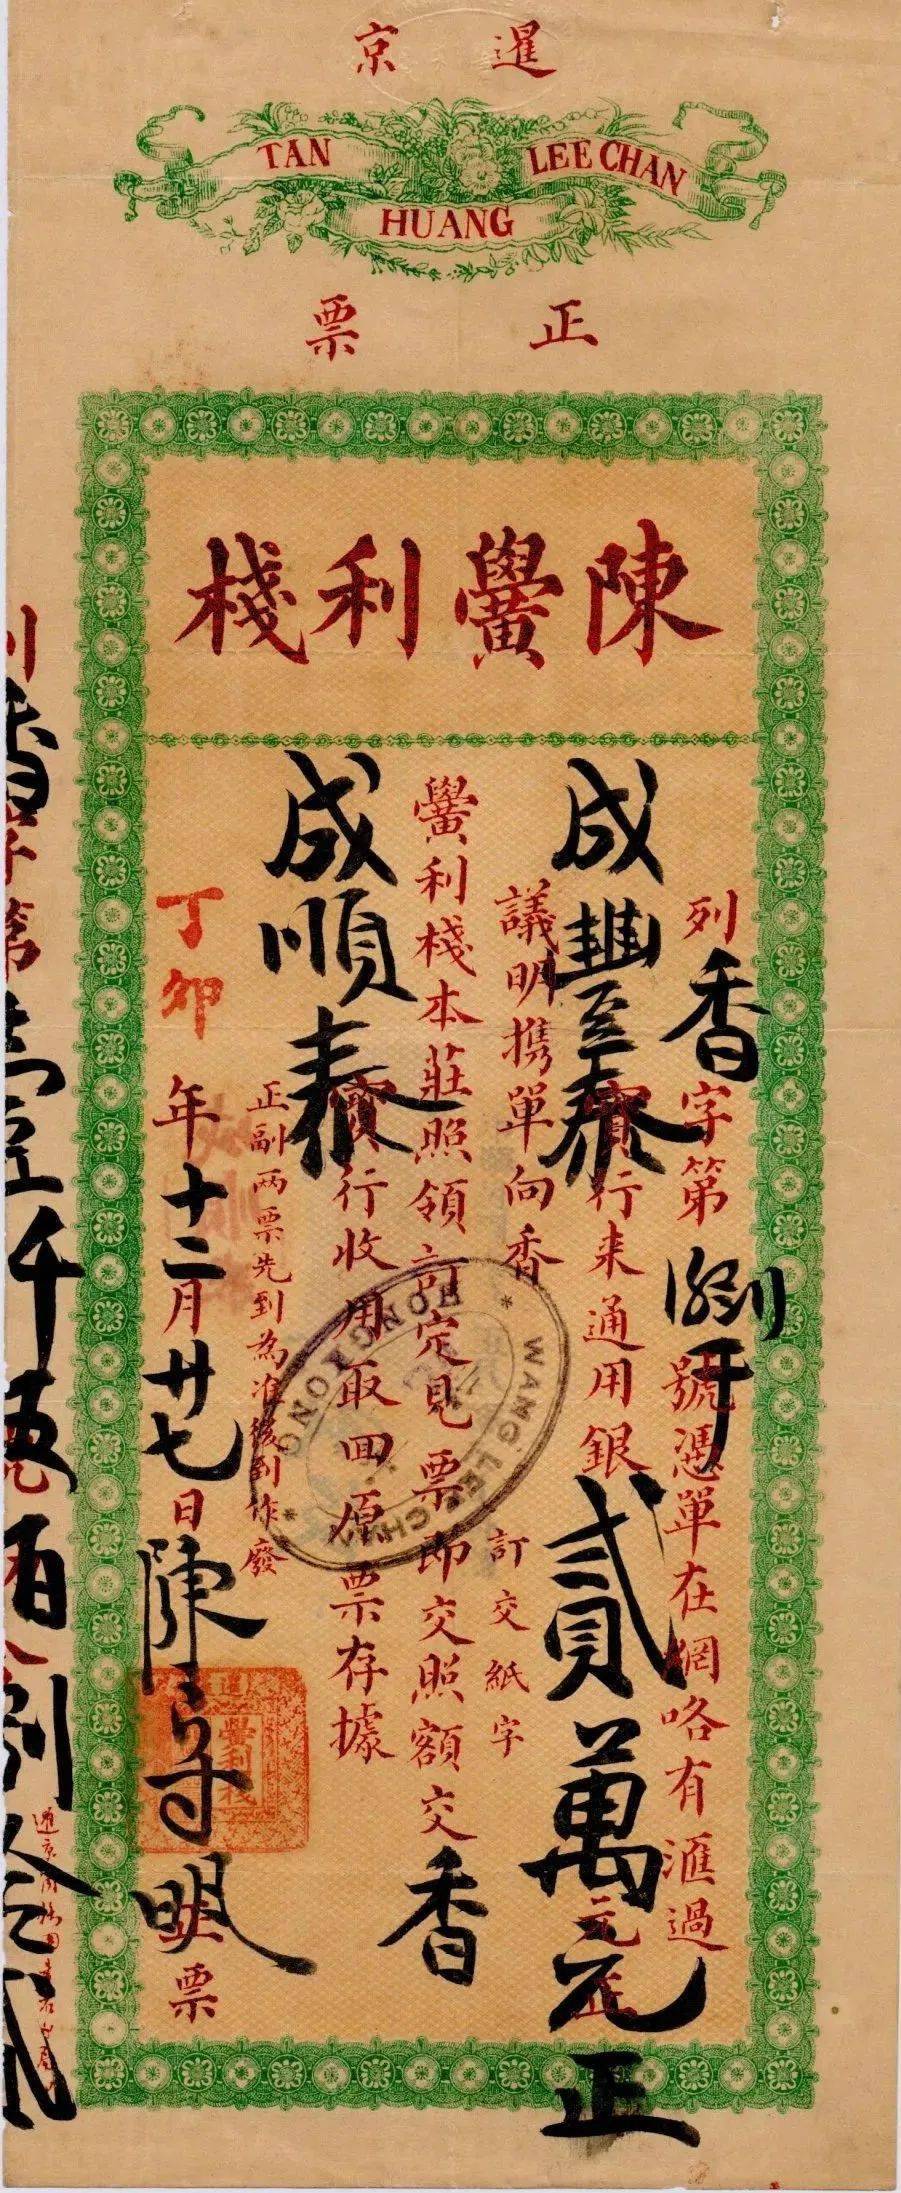 暹京
TAN HUANG LEE CHAN
正票
陳黌利棧
列香字第 號憑單在網咯有滙過
成豐泰寶行来通用銀貳萬元正
議明携單向香
訂交紙字
黌利棧本莊照領訂定見票即交照額交香
成順泰寶行收用取回原票存據
正副两票先到為准後到作廢
丁卯年十二月廿七日陳守明 票
黌利棧
WANG LEE CHAN
HONG KONG